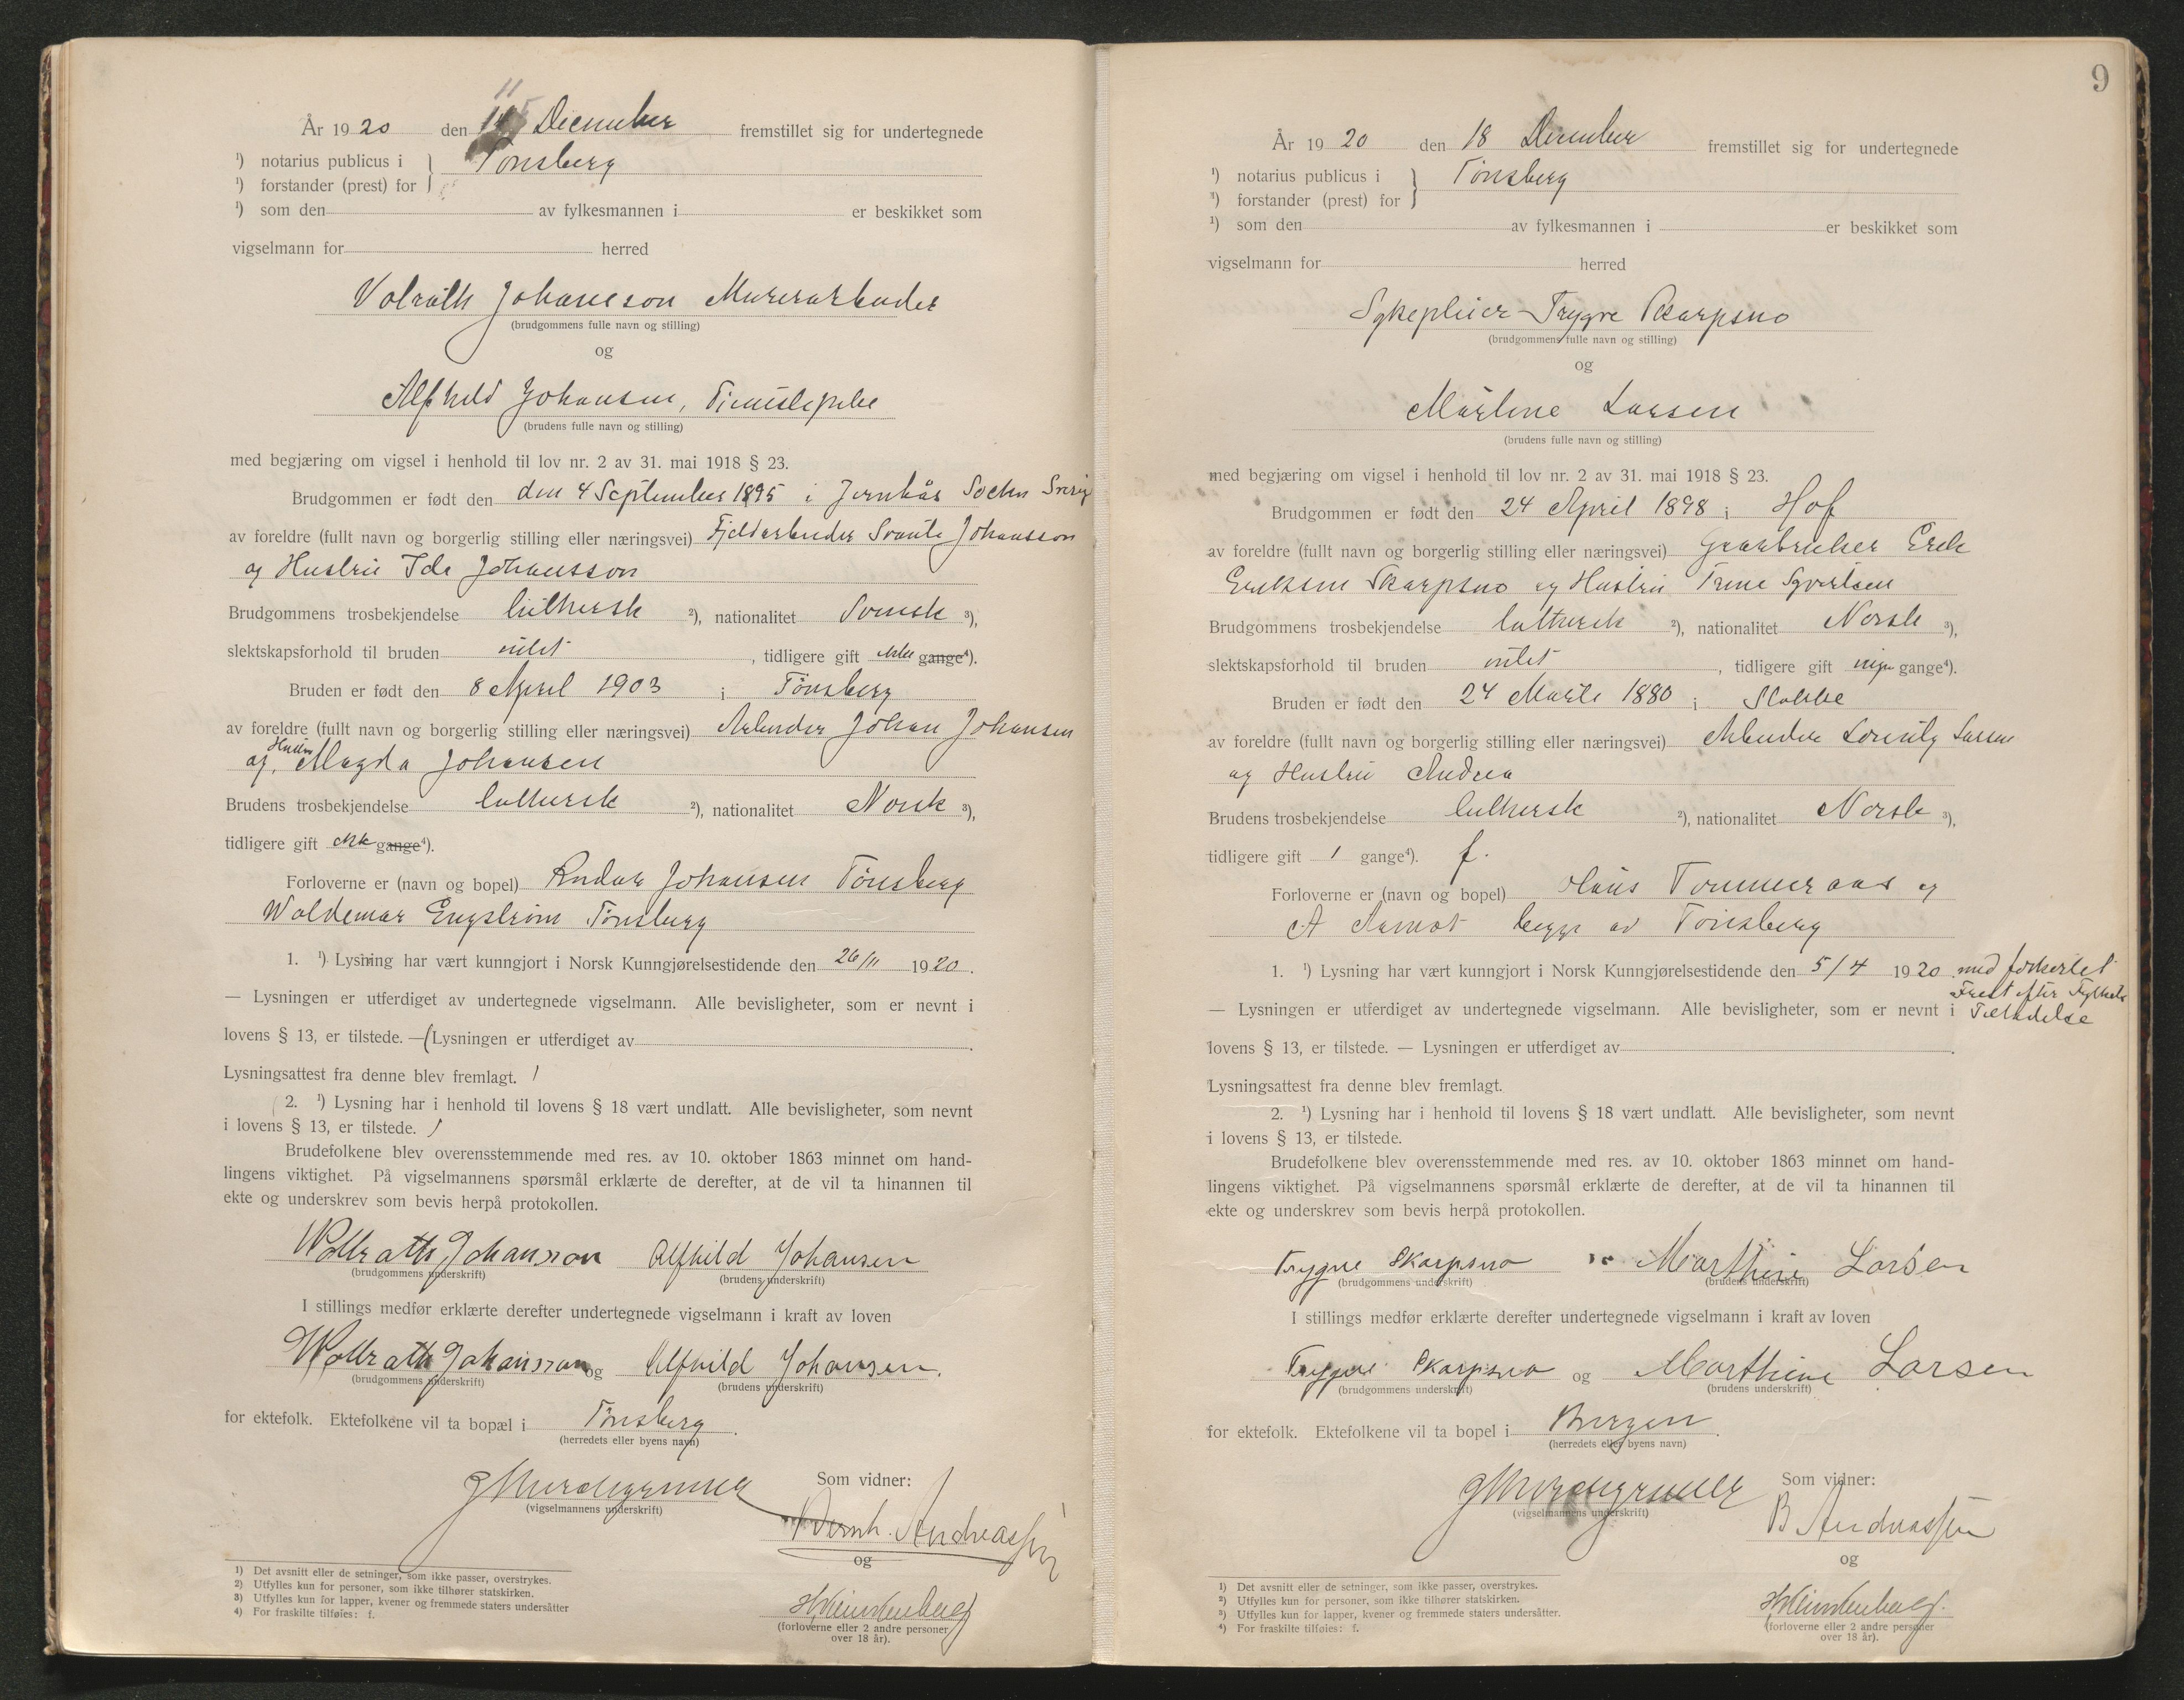 År 1920 den 11 December fremstillet sig for undertegnede
¹) notarius publicus i } Tønsberg
¹) forstander (prest) for
¹) som den av fylkesmannen i er beskikket som
vigselmann for herred
Volrath Johanson Murerarbeider
(brudgommens fulle navn og stilling)
og
Alfhild Johansen,
(brudens fulle navn og stilling)
med begjæring om vigsel i henhold til lov nr. 2 av 31. mai 1918 § 23.
Brudgommen er født den den 4 September 1895 i Socken Sverig
av foreldre (fullt navn og borgerlig stilling eller næringsvei) Fjeldarbeider Svante Johansson
og Hustru Ida Johansson
Brudgommens trosbekjendelse luthersk ²), nationalitet Svensk ³),
slektskapsforhold til bruden intet , tidligere gift ikke gange⁴).
Bruden er født den 8 April 1903 i Tønsberg
av foreldre (fullt navn og borgerlig stilling eller næringsvei) Arbeider Johan Johansen
og Hustru Magda Johansen
Brudens trosbekjendelse luthersk ²), nationalitet Norsk ³),
tidligere gift ikke gange⁴).
Forloverne er (navn og bopel) Johansen Tønsberg
Waldemar Engstrøm Tønsberg
1. ¹) Lysning har vært kunngjort i Norsk Kunngjørelsestidende den 26/11 1920.
— Lysningen er utferdiget av undertegnede vigselmann. Alle bevisligheter, som er nevnt i
lovens § 13, er tilstede. — (Lysningen er utferdiget av .
Lysningsattest fra denne blev fremlagt. )
( 2. ¹) Lysning har i henhold til lovens § 18 vært undlatt. Alle bevisligheter, som nevnt
i lovens § 13, er tilstede. )
Brudefolkene blev overensstemmende med res. av 10. oktober 1863 minnet om hand-
lingens viktighet. På vigselmannens spørsmål erklærte de derefter, at de vil ta hinannen til
ekte og underskrev som bevis herpå protokollen.
Wollrath Johansson Alfhild Johansen
(brudgommens underskrift) (brudens underskrift)
I stillings medfør erklærte derefter undertegnede vigselmann i kraft av loven
Wollrath Johansson og Alfhild Johansen.
(brudgommens underskrift) (brudens underskrift)
for ektefolk. Ektefolkene vil ta bopæl i Tønsberg .
(herredets eller byens navn)
Som vidner:
(vigselmannens underskrift)
Bernh. Andreassen
og
(forloverne eller 2 andre personer
over 18 år).
1) Det avsnitt eller de setninger, som ikke passer, overstrykes.
2) Utfylles kun for personer, som ikke tilhører statskirken.
3) Utfylles kun for lapper, kvener og fremmede staters undersåtter
4) For fraskilte tilføies: f.
9
År 1920 den 18 December fremstillet sig for undertegnede
¹) notarius publicus i } Tønsberg
³) forstander (prest) for
¹) som den av fylkesmannen i er beskikket som
vigselmann for herred
Sykepleier Trygve Skarpsno
(brudgommens fulle navn og stilling)
og
Martine Larsen
(brudens fulle navn og stilling)
med begjæring om vigsel i henhold til lov nr. 2 av 31. mai 1918 § 23.
Brudgommen er født den 24 April 1898 i Hof
av foreldre (fullt navn og borgerlig stilling eller næringsvei) Gaardbruker Erik
Eriksen Skarpsno og Hustru Trine Syvertsen
Brudgommens trosbekjendelse luthersk ²), nationalitet Norsk ³),
slektskapsforhold til bruden intet , tidligere gift ingen gange⁴).
Bruden er født den 24 Marts 1880 i
av foreldre (fullt navn og borgerlig stilling eller næringsvei) Arbeider Larsen
og Hustru Andrea
Brudens trosbekjendelse luthersk ²), nationalitet Norsk ³),
tidligere gift 1 gange⁴). f.
Forloverne er (navn og bopel) Olaus Tommeraas og
A Aamot begge av Tønsberg
1. ¹) Lysning har vært kunngjort i Norsk Kunngjørelsestidende den 5/4 1920 med forkortet
Frist efter Fylkets
— Lysningen er utferdiget av undertegnede vigselmann. Alle bevisligheter, som er nevnt i Tilladelse
lovens § 13, er tilstede. — Lysningen er utferdiget av .
Lysningsattest fra denne blev fremlagt.
2. ¹) Lysning har i henhold til lovens § 18 vært undlatt. Alle bevisligheter, som nevnt
i lovens § 13, er tilstede.
Brudefolkene blev overensstemmende med res. av 10. oktober 1863 minnet om hand-
lingens viktighet. På vigselmannens spørsmål erklærte de derefter, at de vil ta hinannen til
ekte og underskrev som bevis herpå protokollen.
Trygve Skarpsno Marthine Larsen
(brudgommens underskrift) (brudens underskrift)
I stillings medfør erklærte derefter undertegnede vigselmann i kraft av loven
Trygve Skarpsno og Marthine Larsen
(brudgommens underskrift) (brudens underskrift)
for ektefolk. Ektefolkene vil ta bopel i Bergen .
(herredets eller byens navn)
Som vidner:
(vigselmannens underskrift)
B Andreassen
og
(forloverne eller 2 andre personer
over 18 år).
¹) Det avsnitt eller de setninger, som ikke passer, overstrykes.
²) Utfylles kun for personer, som ikke tilhører statskirken.
³) Utfylles kun for lapper, kvener og fremmede staters undersåtter.
⁴) For fraskilte tilføies: f.